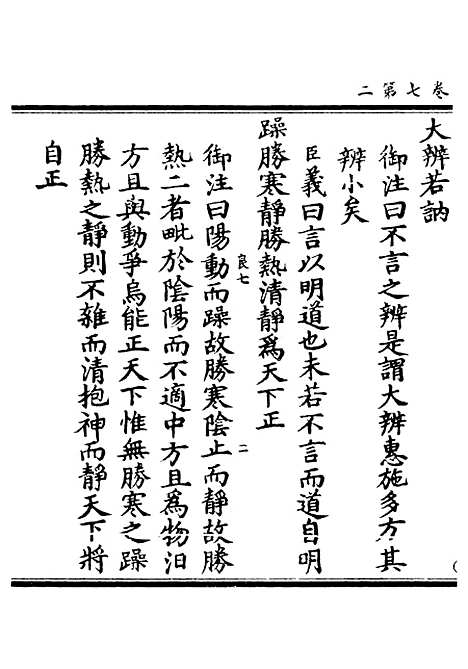 卷七第二
大辨若訥
御注曰不言之辨是謂大辨惠施多方其
辨小矣
臣義曰言以明道也未若不言而道自明
躁勝寒靜勝熱清靜爲天下正
良七
二
御注曰陽動而躁故勝寒陰止而靜故勝
熱二者毗於陰陽而不適中方且爲物汩
方且與動爭烏能正天下惟無勝寒之躁
勝熱之靜則不雜而清抱神而靜天下將
自正